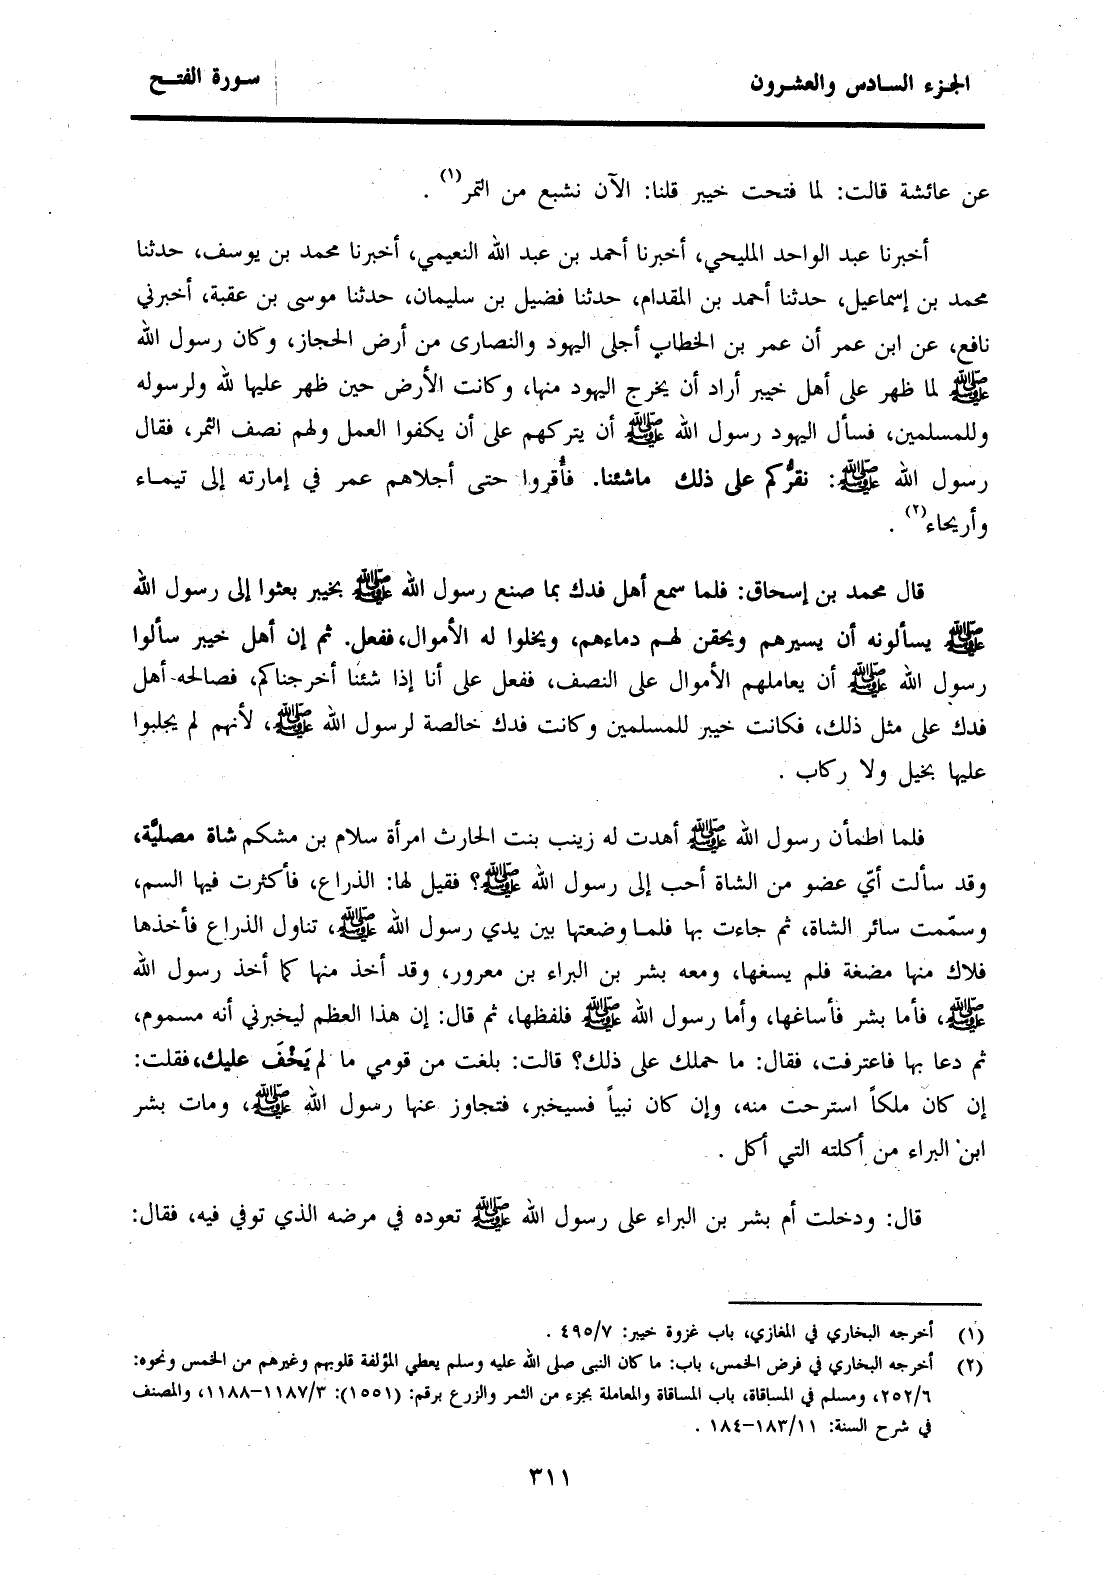 الجزء السادس والعشرون
سورة الفتح
عن عائشة قالت: لما فتحت خيبر قلنا: الآن نشبع من التمر(١) .
أخبرنا عبد الواحد المليحي، أخبرنا أحمد بن عبد الله النعيمي، أخبرنا محمد بن يوسف، حدثنا
محمد بن إسماعيل، حدثنا أحمد بن المقدام، حدثنا فضيل بن سليمان، حدثنا موسى بن عقبة، أخبرني
نافع، عن ابن عمر أن عمر بن الخطاب أجلى اليهود والنصارى من أرض الحجاز، وكان رسول الله
ﷺ لما ظهر على أهل خيبر أراد أن يخرج اليهود منها، وكانت الأرض حين ظهر عليها لله ولرسوله
وللمسلمين، فسأل اليهود رسول الله ﷺ أن يتركهم على أن يكفوا العمل ولهم نصف الثمر، فقال
رسول الله ﷺ: نقرُّكم على ذلك ماشئنا. فأُقروا حتى أجلاهم عمر في إمارته إلى تيماء
وأريحاء(٢) .
قال محمد بن إسحاق: فلما سمع أهل فدك بما صنع رسول الله ﷺ بخيبر بعثوا إلى رسول الله
ﷺ يسألونه أن يسيرهم ويحقن لهم دماءهم، ويخلوا له الأموال، ففعل. ثم إن أهل خيبر سألوا
رسول الله ﷺ أن يعاملهم الأموال على النصف، ففعل على أنا إذا شئنا أخرجناكم، فصالحه أهل
فدك على مثل ذلك، فكانت خيبر للمسلمين وكانت فدك خالصة لرسول الله ﷺ، لأنهم لم يجلبوا
عليها بخيل ولا ركاب .
فلما اطمأن رسول الله ﷺ أهدت له زينب بنت الحارث امرأة سلام بن مشكم شاة مصليَّة،
وقد سألت أيّ عضو من الشاة أحب إلى رسول الله ﷺ؟ فقيل لها: الذراع، فأكثرت فيها السم،
وسمّمت سائر الشاة، ثم جاءت بها فلما وضعتها بين يدي رسول الله ﷺ، تناول الذراع فأخذها
فلاك منها مضغة فلم يسغها، ومعه بشر بن البراء بن معرور، وقد أخذ منها كما أخذ رسول الله
ﷺ، فأما بشر فأساغها، وأما رسول الله ﷺ فلفظها، ثم قال: إن هذا العظم ليخبرني أنه مسموم،
ثم دعا بها فاعترفت، فقال: ما حملك على ذلك؟ قالت: بلغت من قومي ما لم يَخْفَ عليك، فقلت:
إن كان ملكاً استرحت منه، وإن كان نبياً فسيخبر، فتجاوز عنها رسول الله ﷺ، ومات بشر
ابن البراء من أكلته التي أكل .
قال: ودخلت أم بشر بن البراء على رسول الله ﷺ تعوده في مرضه الذي توفي فيه، فقال:
(١) أخرجه البخاري في المغازي، باب غزوة خيبر: ٤٩٥/٧ .
(٢) أخرجه البخاري في فرض الخمس، باب: ما كان النبى صلى الله عليه وسلم يعطي المؤلفة قلوبهم وغيرهم من الخمس ونحوه:
٢٥٢/٦، ومسلم في المساقاة، باب المساقاة والمعاملة بجزء من الثمر والزرع برقم: (١٥٥١): ١١٨٧/٣-١١٨٨، والمصنف
في شرح السنة: ١٨٣/١١-١٨٤ .
٣١١